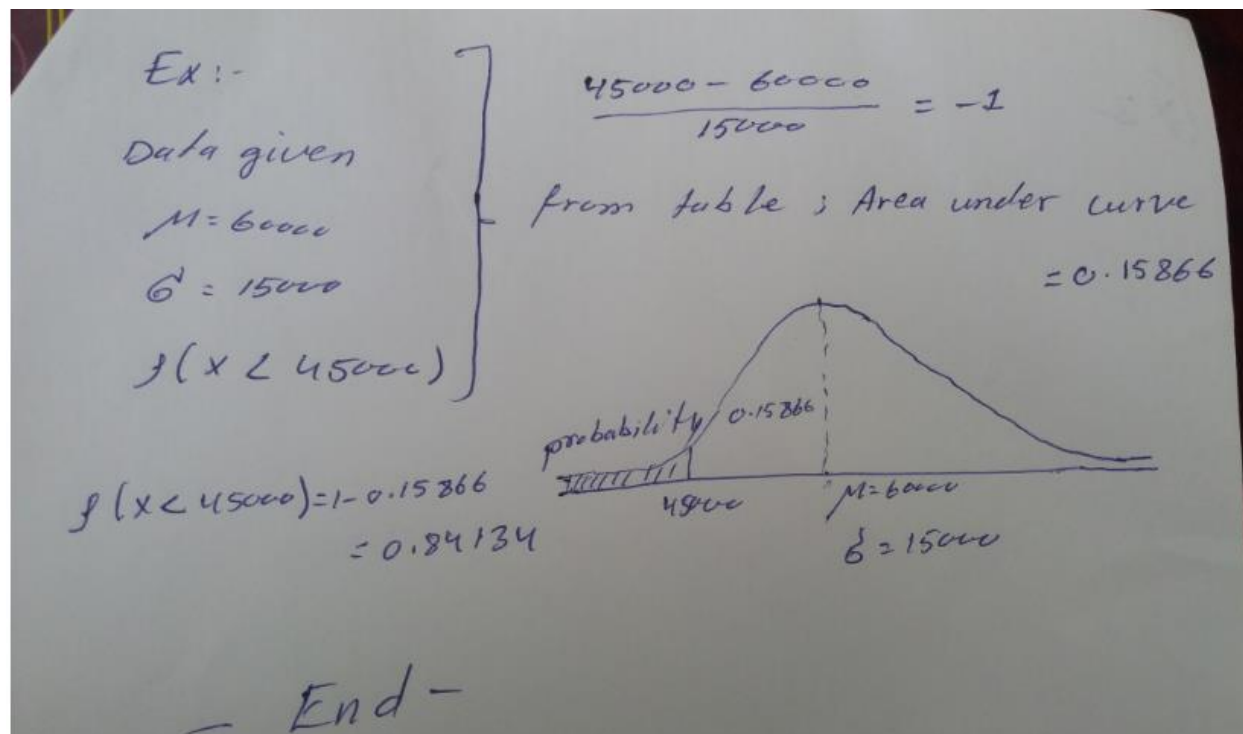 Ex:-
Data given
M = 60000
σ = 15000
P(X < 45000)
45000 - 60000
15000
= -1
from table ; Area under curve
= 0.15866
probability
0.15866
45000
M=60000
σ = 15000
P(X < 45000) = 1 - 0.15866
= 0.84134
- End -